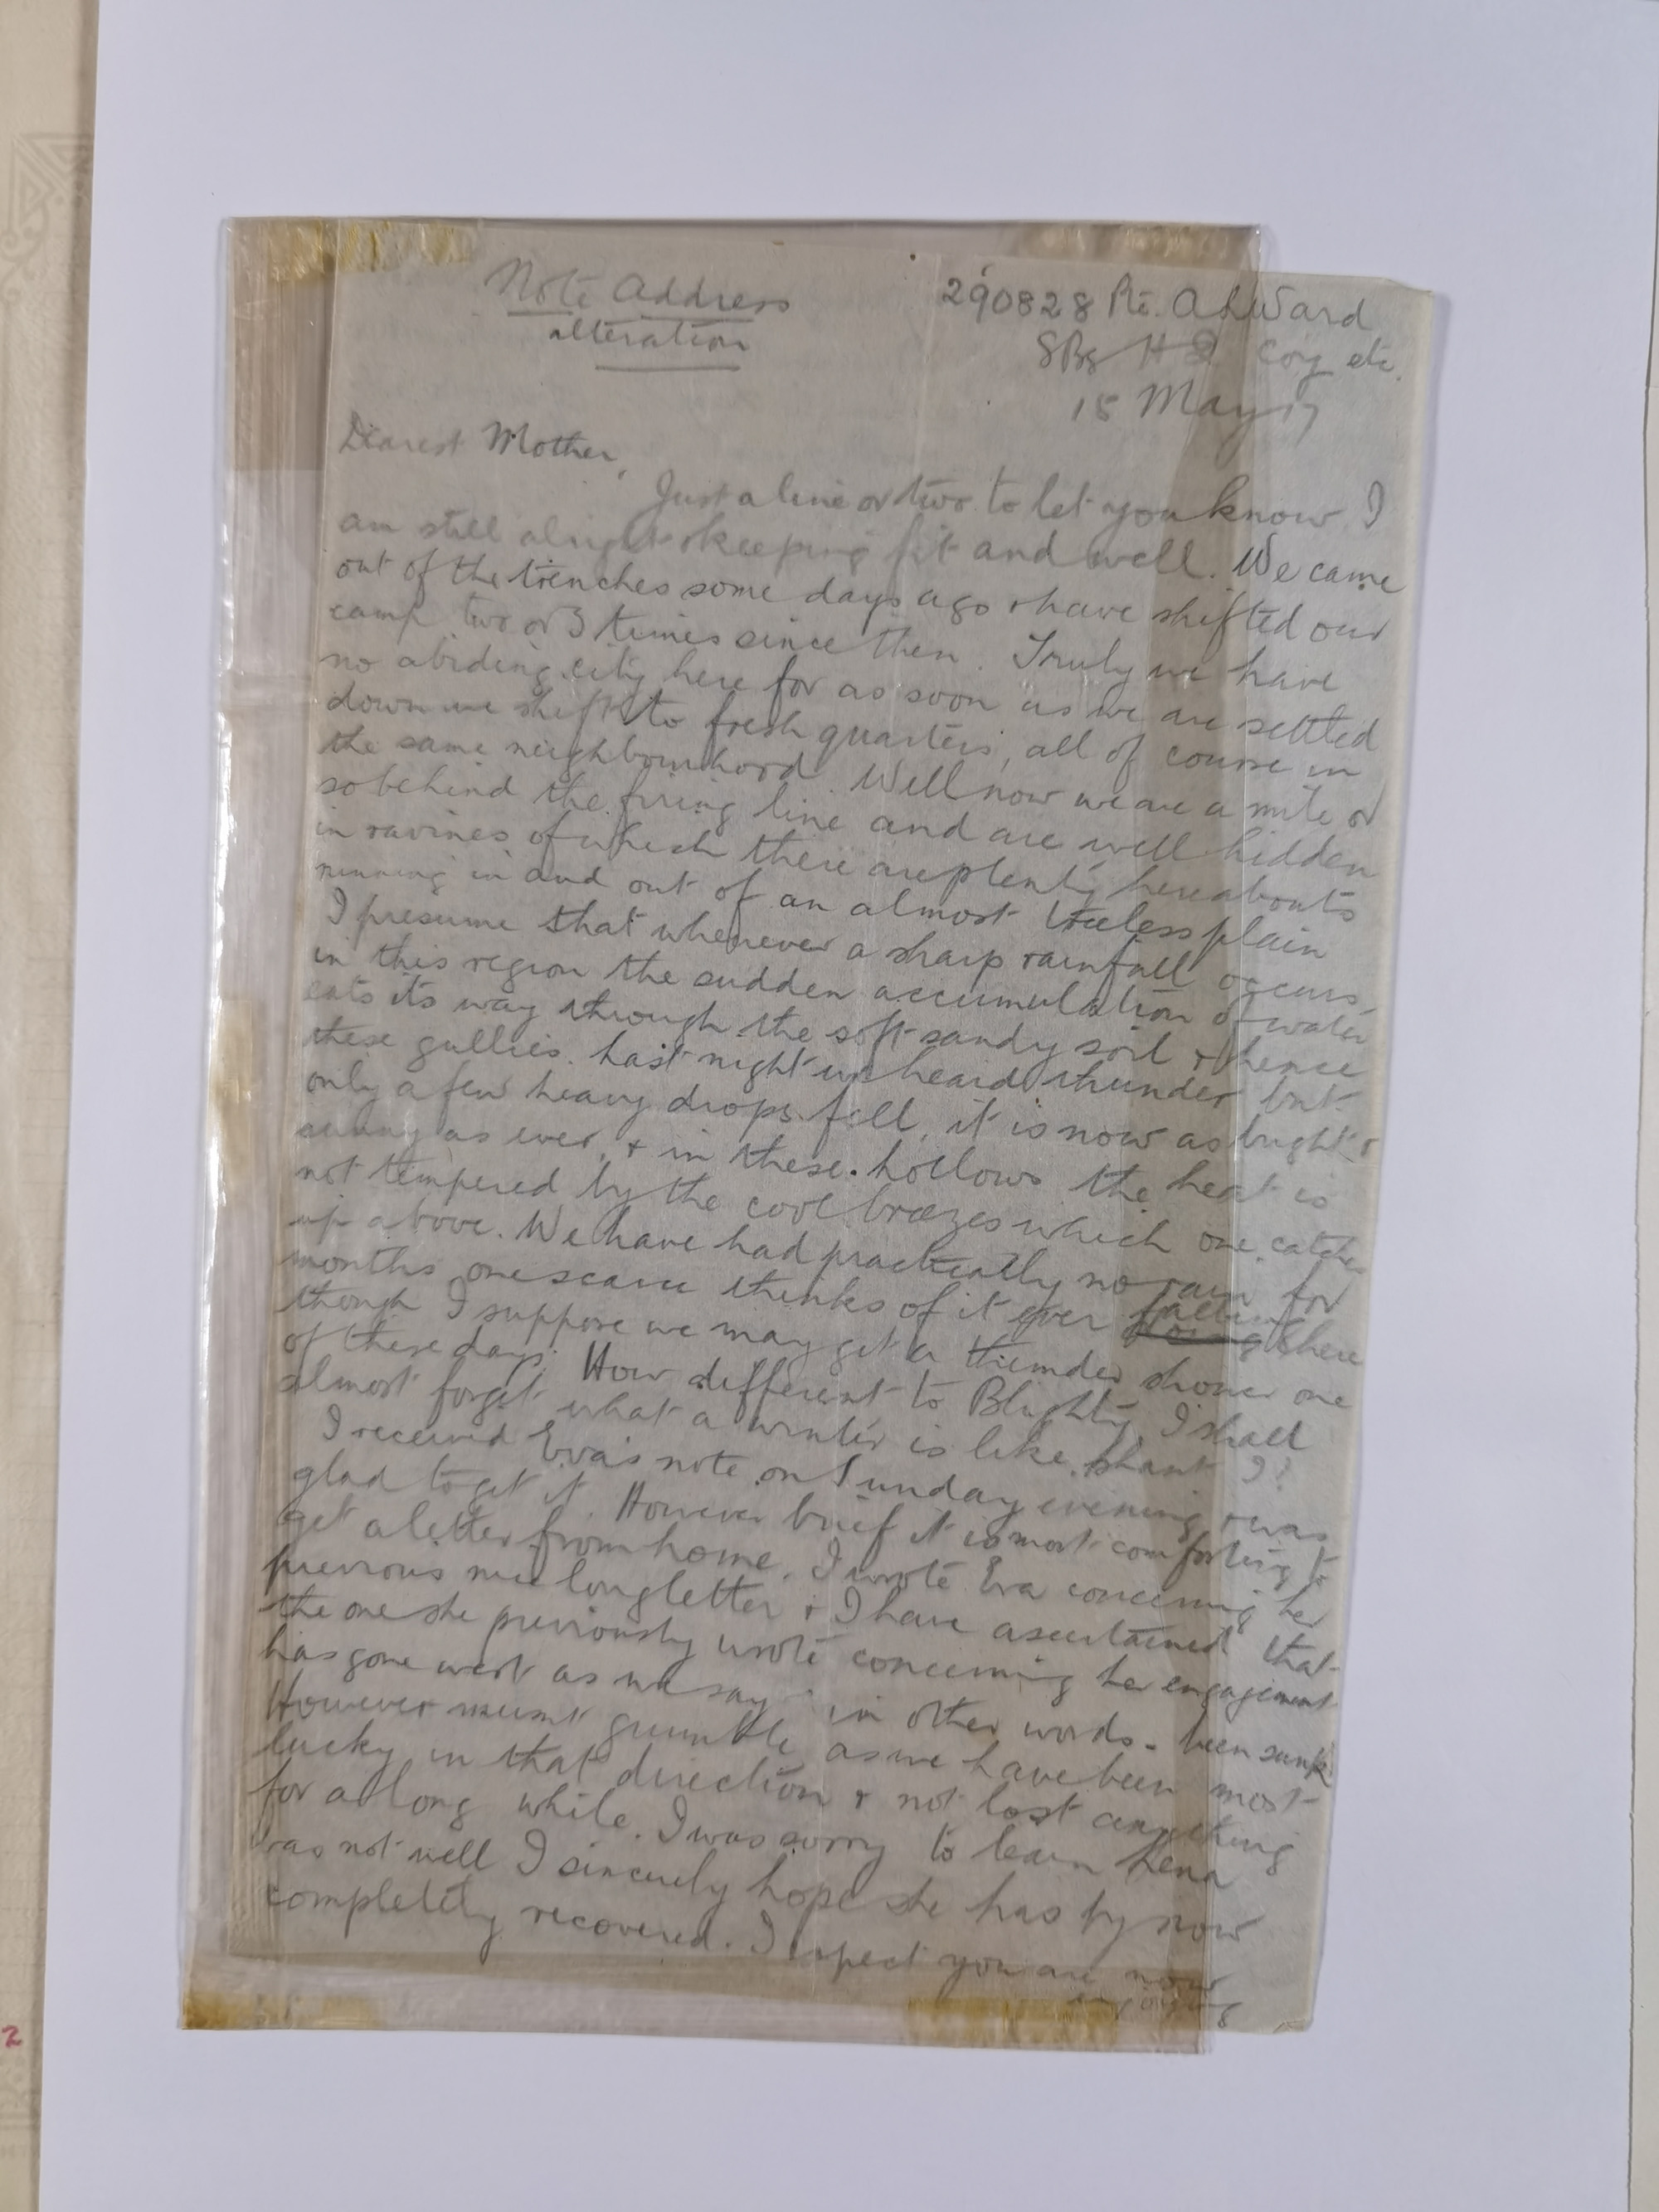 Note Address
alteration
290828 Pte. A L Ward
SBs H Q Coy etc.
15 May 17
Dearest Mother,
Just a line or two to let you know I
am still alright & keeping fit and well. We came
out of the trenches some days ago & have shifted our
camp two or 3 times since then. Truly we have
no abiding city here for as soon as we are settled
down we shift to fresh quarters, all of course in
the same neighbourhood. Well now we are a mile or
so behind the firing line and are well hidden
in ravines of which there are plenty hereabouts
running in and out of an almost treeless plain
I presume that whenever a sharp rainfall occurs,
in this region the sudden accumulation of water
eats its way through the soft sandy soil & hence
these gullies. Last night we heard thunder but
only a few heavy drops fell, it is now as bright &
sunny as ever, & in these hollows the heat is
not tempered by the cool breezes which one catches
up above. We have had practically no rain for
months one scarce thinks of it ever falling here
though I suppose we may get a thunder shower one
of these days. How different to Blighty, I shall
almost forget what a winter is like, shant I?
I received Eva's note on Sunday evening & was
glad to get it. However brief it is most comforting to
get a letter from home. I wrote Eva concerning her
previous nice long letter & I have ascertained that
the one she previously wrote concerning her engagement
has gone west as we say - in other words - been sunk
However musnt grumble as we have been most
lucky in that direction & not lost anything
for a long while. I was sorry to learn Lena
was not well I sincerely hope she has by now
completely recovered. I expect you are now
enjoying
2